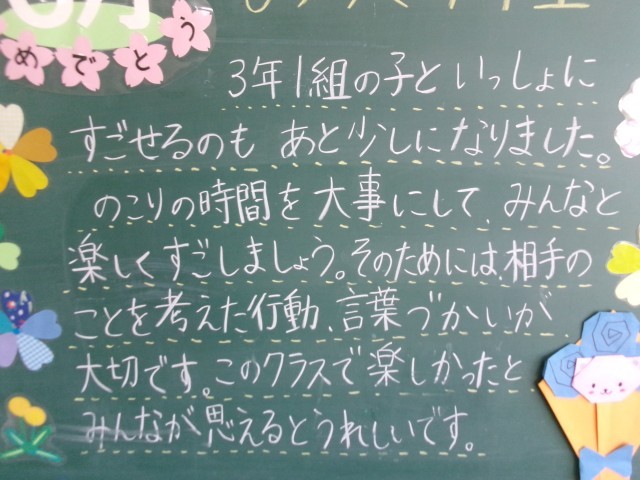 めでとう
3年1組の子といっしょに
すごせるのも あと少しになりました。
のこりの時間を大事にして、みんなと
楽しくすごしましょう。そのためには、相手の
ことを考えた行動、言葉づかいが
大切です。このクラスで楽しかったと
みんなが思えるとうれしいです。